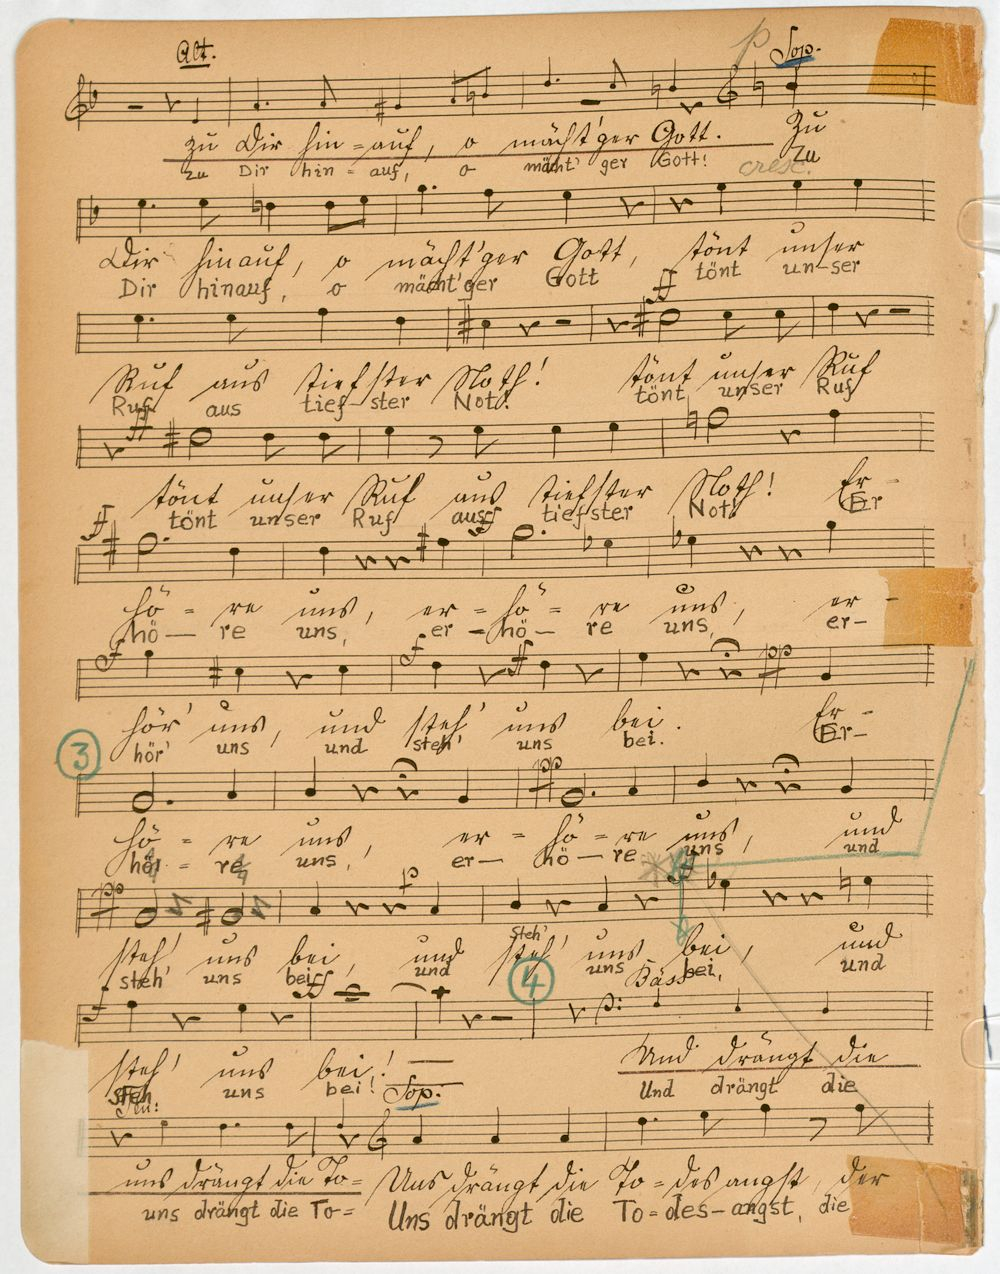 Alt.
p Sop.
zu Dir hin = auf, o mächt'ger Gott. Zu
zu Dir hin = auf, o mächt' ger Gott! Zu
cresc.
Dir hinauf, o mächt'ger Gott, tönt unser
Dir hinauf, o mächt'ger Gott tönt un-ser
ff
Ruf aus tiefster Noth! tönt unser Ruf
Ruf aus tief-ster Not! tönt unser Ruf
ff
tönt unser Ruf aus tiefster Noth! Er-
tönt unser Ruf aus tiefster Not! Er
ff ff
hö = re uns, er = hö = re uns, er-
hö — re uns, er - hö — re uns, er-
f f ff pp
hör' uns, und steh' uns bei. Er-
hör' uns und steh' uns bei. Er-
3
pp
hö = re uns, er = hö = re uns, und
hö = re uns, er — hö — re uns und
pp p
steh' uns bei, und steh' uns bei, und
steh' uns bei und steh' uns bei, und
4 Bässe
f ff
steh' uns bei! Und drängt die
steh uns bei! Sop: Und drängt die
Ten:
uns drängt die To= Uns drängt die To = des angst, der
uns drängt die To= Uns drängt die To = des-angst, die